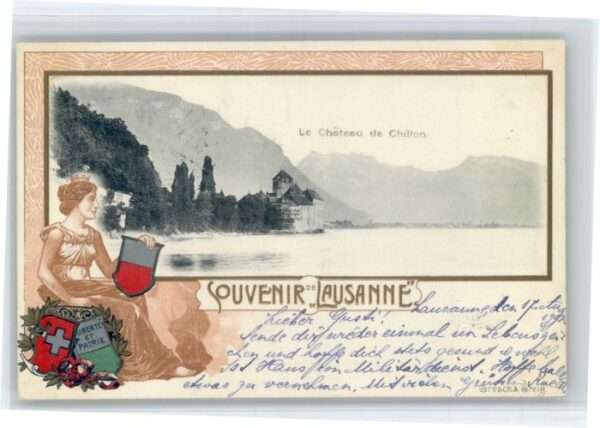 Le Château de Chillon
SOUVENIR DE "LAUSANNE"
LIBERTÉ
ET
PATRIE
Lieber Gusti! Lausanne, den 17.
Sende dir wieder einmal ein Lebenszei-
chen und hoffe dich stets gesund & wohl
Ist Hans im Militärdienst. Hoffe bald
etwas zu vernehmen. Mit vielen Grüssen